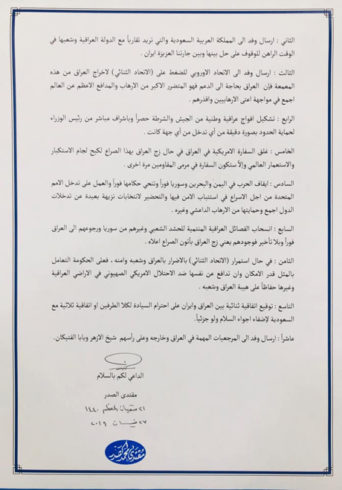 الثاني : ارسال وفد الى المملكة العربية السعودية والتي تريد تقارباً مع الدولة العراقية وشعبها في
الوقت الراهن للوقوف على حل بينها وبين جارتنا العزيزة ايران .
الثالث : ارسال وفد الى الاتحاد الاوروبي للضغط على (الاتحاد الثنائي) لاخراج العراق من هذه
المعمعة فإن العراق بحاجة الى الدعم فهو المتضرر الاكبر من الارهاب والمدافع الاعظم عن العالم
اجمع في مواجهة اعتى الارهابيين واقذرهم .
الرابع : تشكيل افواج عراقية وطنية من الجيش والشرطة حصراً وباشراف مباشر من رئيس الوزراء
لحماية الحدود بصورة دقيقة من أي تدخل من أي جهة كانت .
الخامس : غلق السفارة الامريكية في العراق في حال زج العراق بهذا الصراع لكبح لجام الاستكبار
والاستعمار العالمي وإلاّ ستكون السفارة في مرمى المقاومين مرة اخرى .
السادس : ايقاف الحرب في اليمن والبحرين وسوريا فوراً وتنحي حكامها فوراً والعمل على تدخل الامم
المتحدة من اجل الاسراع في استتباب الامن فيها والتحضير لانتخابات نزيهة بعيدة عن تدخلات
الدول اجمع وحمايتها من الارهاب الداعشي وغيره .
السابع : انسحاب الفصائل العراقية المنتمية للحشد الشعبي وغيرهم من سوريا ورجوعهم الى العراق
فوراً وبلا تأخير فوجودهم يعني زج العراق بأتون الصراع اعلاه .
الثامن : في حال استمرار (الاتحاد الثنائي) بالاضرار بالعراق وشعبه وامنه ، فعلى الحكومة التعامل
بالمثل قدر الامكان وان تدافع عن نفسها ضد الاحتلال الامريكي الصهيوني في الاراضي العراقية
وغيرها حفاظاً على هيبة العراق وشعبه .
التاسع : توقيع اتفاقية ثنائية بين العراق وايران على احترام السيادة لكلا الطرفين او اتفاقية ثلاثية مع
السعودية لإضفاء اجواء السلام ولو جزئياً.
عاشراً : ارسال وفد الى المرجعيات المهمة في العراق وخارجه وعلى رأسهم شيخ الازهر وبابا الفتيكان.
الداعي لكم بالسلام
مقتدى الصدر
٢١ شعبان المعظم ١٤٤٠
٢٧ نيسان ٢٠١٩
مقتدى الصدر